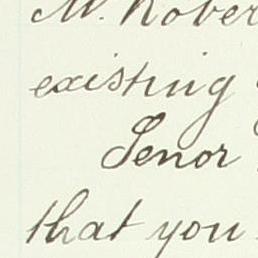 M. Rober
existing
Senor
that you